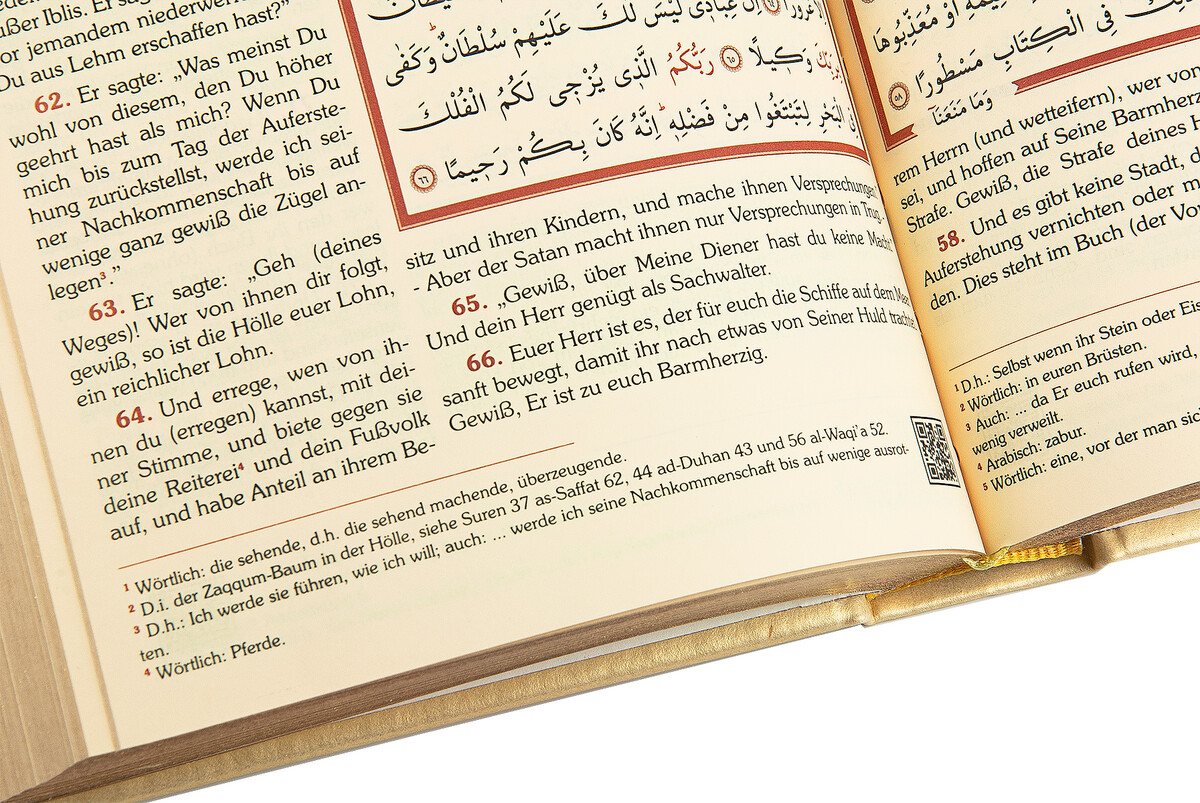 ußer Iblis. Er sag
or jemandem niederwer
Du aus Lehm erschaffen hast?”
62. Er sagte: „Was meinst Du
wohl von diesem, den Du höher
geehrt hast als mich? Wenn Du
mich bis zum Tag der Auferste-
hung zurückstellst, werde ich sei-
ner Nachkommenschaft bis auf
wenige ganz gewiß die Zügel an-
legen³.”
63. Er sagte: „Geh (deines
Weges)! Wer von ihnen dir folgt,
gewiß, so ist die Hölle euer Lohn,
ein reichlicher Lohn.
64. Und errege, wen von ih-
nen du (erregen) kannst, mit dei-
ner Stimme, und biete gegen sie
deine Reiterei⁴ und dein Fußvolk
auf, und habe Anteil an ihrem Be-
إِنَّ عِبَادِي لَيْسَ لَكَ عَلَيْهِمْ سُلْطَانٌ وَكَفٰى
بِرَبِّكَ وَكِيلًا ٦٥ رَبُّكُمُ الَّذِي يُزْجِي لَكُمُ الْفُلْكَ
فِي الْبَحْرِ لِتَبْتَغُوا مِنْ فَضْلِهِ إِنَّهُ كَانَ بِكُمْ رَحِيمًا ٦٦
sitz und ihren Kindern, und mache ihnen Versprechungen.”
- Aber der Satan macht ihnen nur Versprechungen in Trug. -
65. „Gewiß, über Meine Diener hast du keine Macht.”
Und dein Herr genügt als Sachwalter.
66. Euer Herr ist es, der für euch die Schiffe auf dem Meer
sanft bewegt, damit ihr nach etwas von Seiner Huld trachtet.
Gewiß, Er ist zu euch Barmherzig.
¹ Wörtlich: die sehende, d.h. die sehend machende, überzeugende.
² D.i. der Zaqqum-Baum in der Hölle, siehe Suren 37 as-Saffat 62, 44 ad-Duhan 43 und 56 al-Waqi’a 52.
³ D.h.: Ich werde sie führen, wie ich will; auch: ... werde ich seine Nachkommenschaft bis auf wenige ausrot-
ten.
⁴ Wörtlich: Pferde.
أَوْ مُعَذِّبُوهَا
فِي الْكِتَابِ مَسْطُورًا ٥٨
وَمَا مَنَعَنَا
rem Herrn (und wetteifern), wer von
sei, und hoffen auf Seine Barmherz
Strafe. Gewiß, die Strafe deines H
58. Und es gibt keine Stadt, d
Auferstehung vernichten oder m
den. Dies steht im Buch (der Vo
¹ D.h.: Selbst wenn ihr Stein oder Eis
² Wörtlich: in euren Brüsten.
³ Auch: ... da Er euch rufen wird,
wenig verweilt.
⁴ Arabisch: zabur.
⁵ Wörtlich: eine, vor der man sic